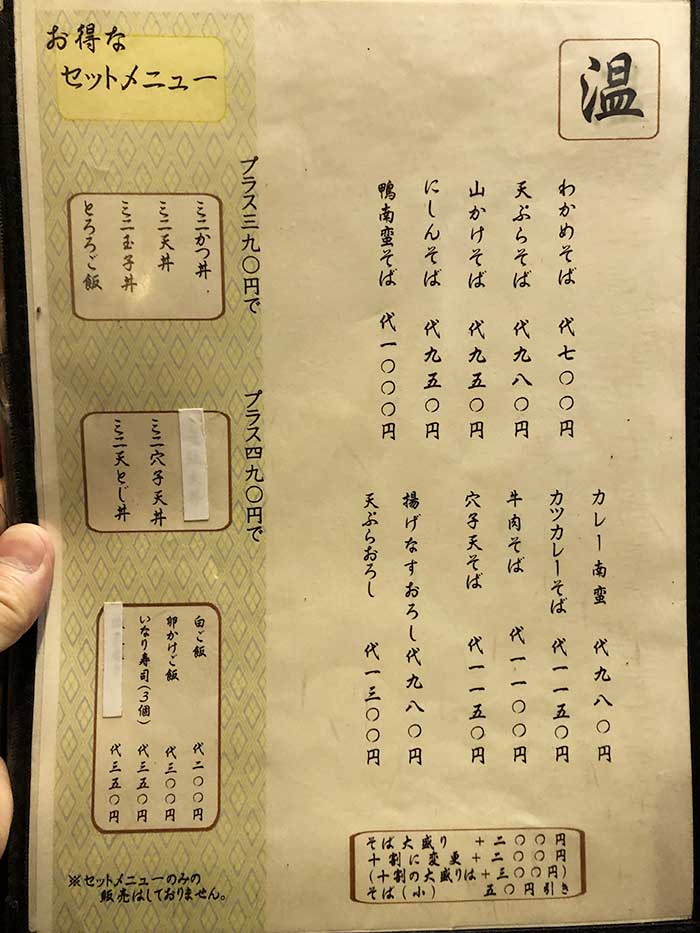 温
わかめそば 代七〇〇円
天ぷらそば 代九八〇円
山かけそば 代九五〇円
にしんそば 代九五〇円
鴨南蛮そば 代一〇〇〇円
カレー南蛮 代九八〇円
カツカレーそば 代一一五〇円
牛肉そば 代一一〇〇円
穴子天そば 代一一五〇円
揚げなすおろし 代九八〇円
天ぷらおろし 代一三〇〇円
そば大盛り +二〇〇円
十割に変更+二〇〇円
(十割の大盛りは+三〇〇円)
そば(小) 五〇円引き
お得な
セットメニュー
プラス三九〇円で
ミニかつ丼
ミニ天丼
ミニ玉子丼
とろろご飯
プラス四九〇円で
ミニ穴子天丼
ミニ天とじ丼
白ご飯 代二〇〇円
卵かけご飯 代三〇〇円
いなり寿司(3個) 代三五〇円
代三五〇円
※セットメニューのみの
販売はしておりません。